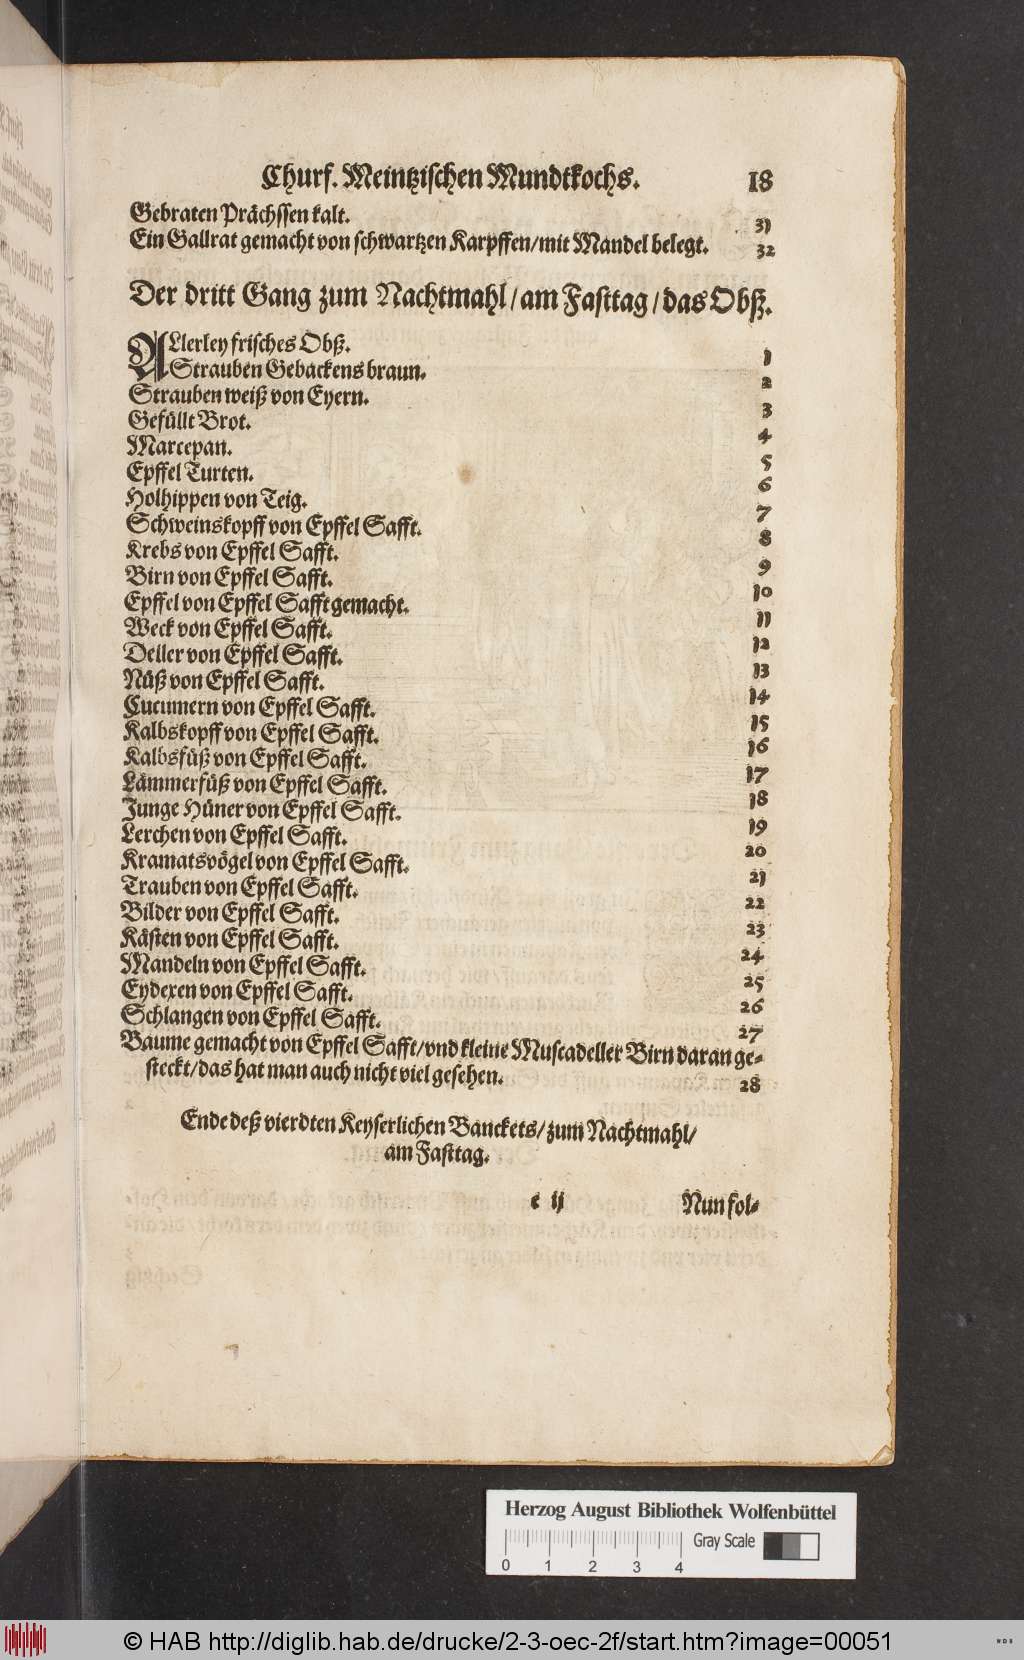 Churf. Meintzischen Mundtkochs. 18
Gebraten Prächssen kalt. 31
Ein Gallrat gemacht von schwartzen Karpffen/mit Mandel belegt. 32
Der dritt Gang zum Nachtmahl/am Fasttag/das Obß.
ALlerley frisches Obß. 1
Strauben Gebackens braun. 2
Strauben weiß von Eyern. 3
Gefüllt Brot. 4
Marcepan. 5
Epffel Turten. 6
Holhippen von Teig. 7
Schweinskopff von Epffel Safft. 8
Krebs von Epffel Safft. 9
Birn von Epffel Safft. 10
Epffel von Epffel Safft gemacht. 11
Weck von Epffel Safft. 12
Deller von Epffel Safft. 13
Nüß von Epffel Safft. 14
Cucumern von Epffel Safft. 15
Kalbskopff von Epffel Safft. 16
Kalbsfüß von Epffel Safft. 17
Lämmerfüß von Epffel Safft. 18
Junge Hüner von Epffel Safft. 19
Lerchen von Epffel Safft. 20
Kramatsvögel von Epffel Safft. 21
Trauben von Epffel Safft. 22
Bilder von Epffel Safft. 23
Kästen von Epffel Safft. 24
Mandeln von Epffel Safft. 25
Eydexen von Epffel Safft. 26
Schlangen von Epffel Safft. 27
Bäume gemacht von Epffel Safft/vnd kleine Muscadeller Birn daran ge-
steckt/das hat man auch nicht viel gesehen. 28
Ende deß vierdten Keyserlichen Banckets/zum Nachtmahl/
am Fasttag.
e ij Nun fol-
Herzog August Bibliothek Wolfenbüttel
0 1 2 3 4 Gray Scale
© HAB http://diglib.hab.de/drucke/2-3-oec-2f/start.htm?image=00051